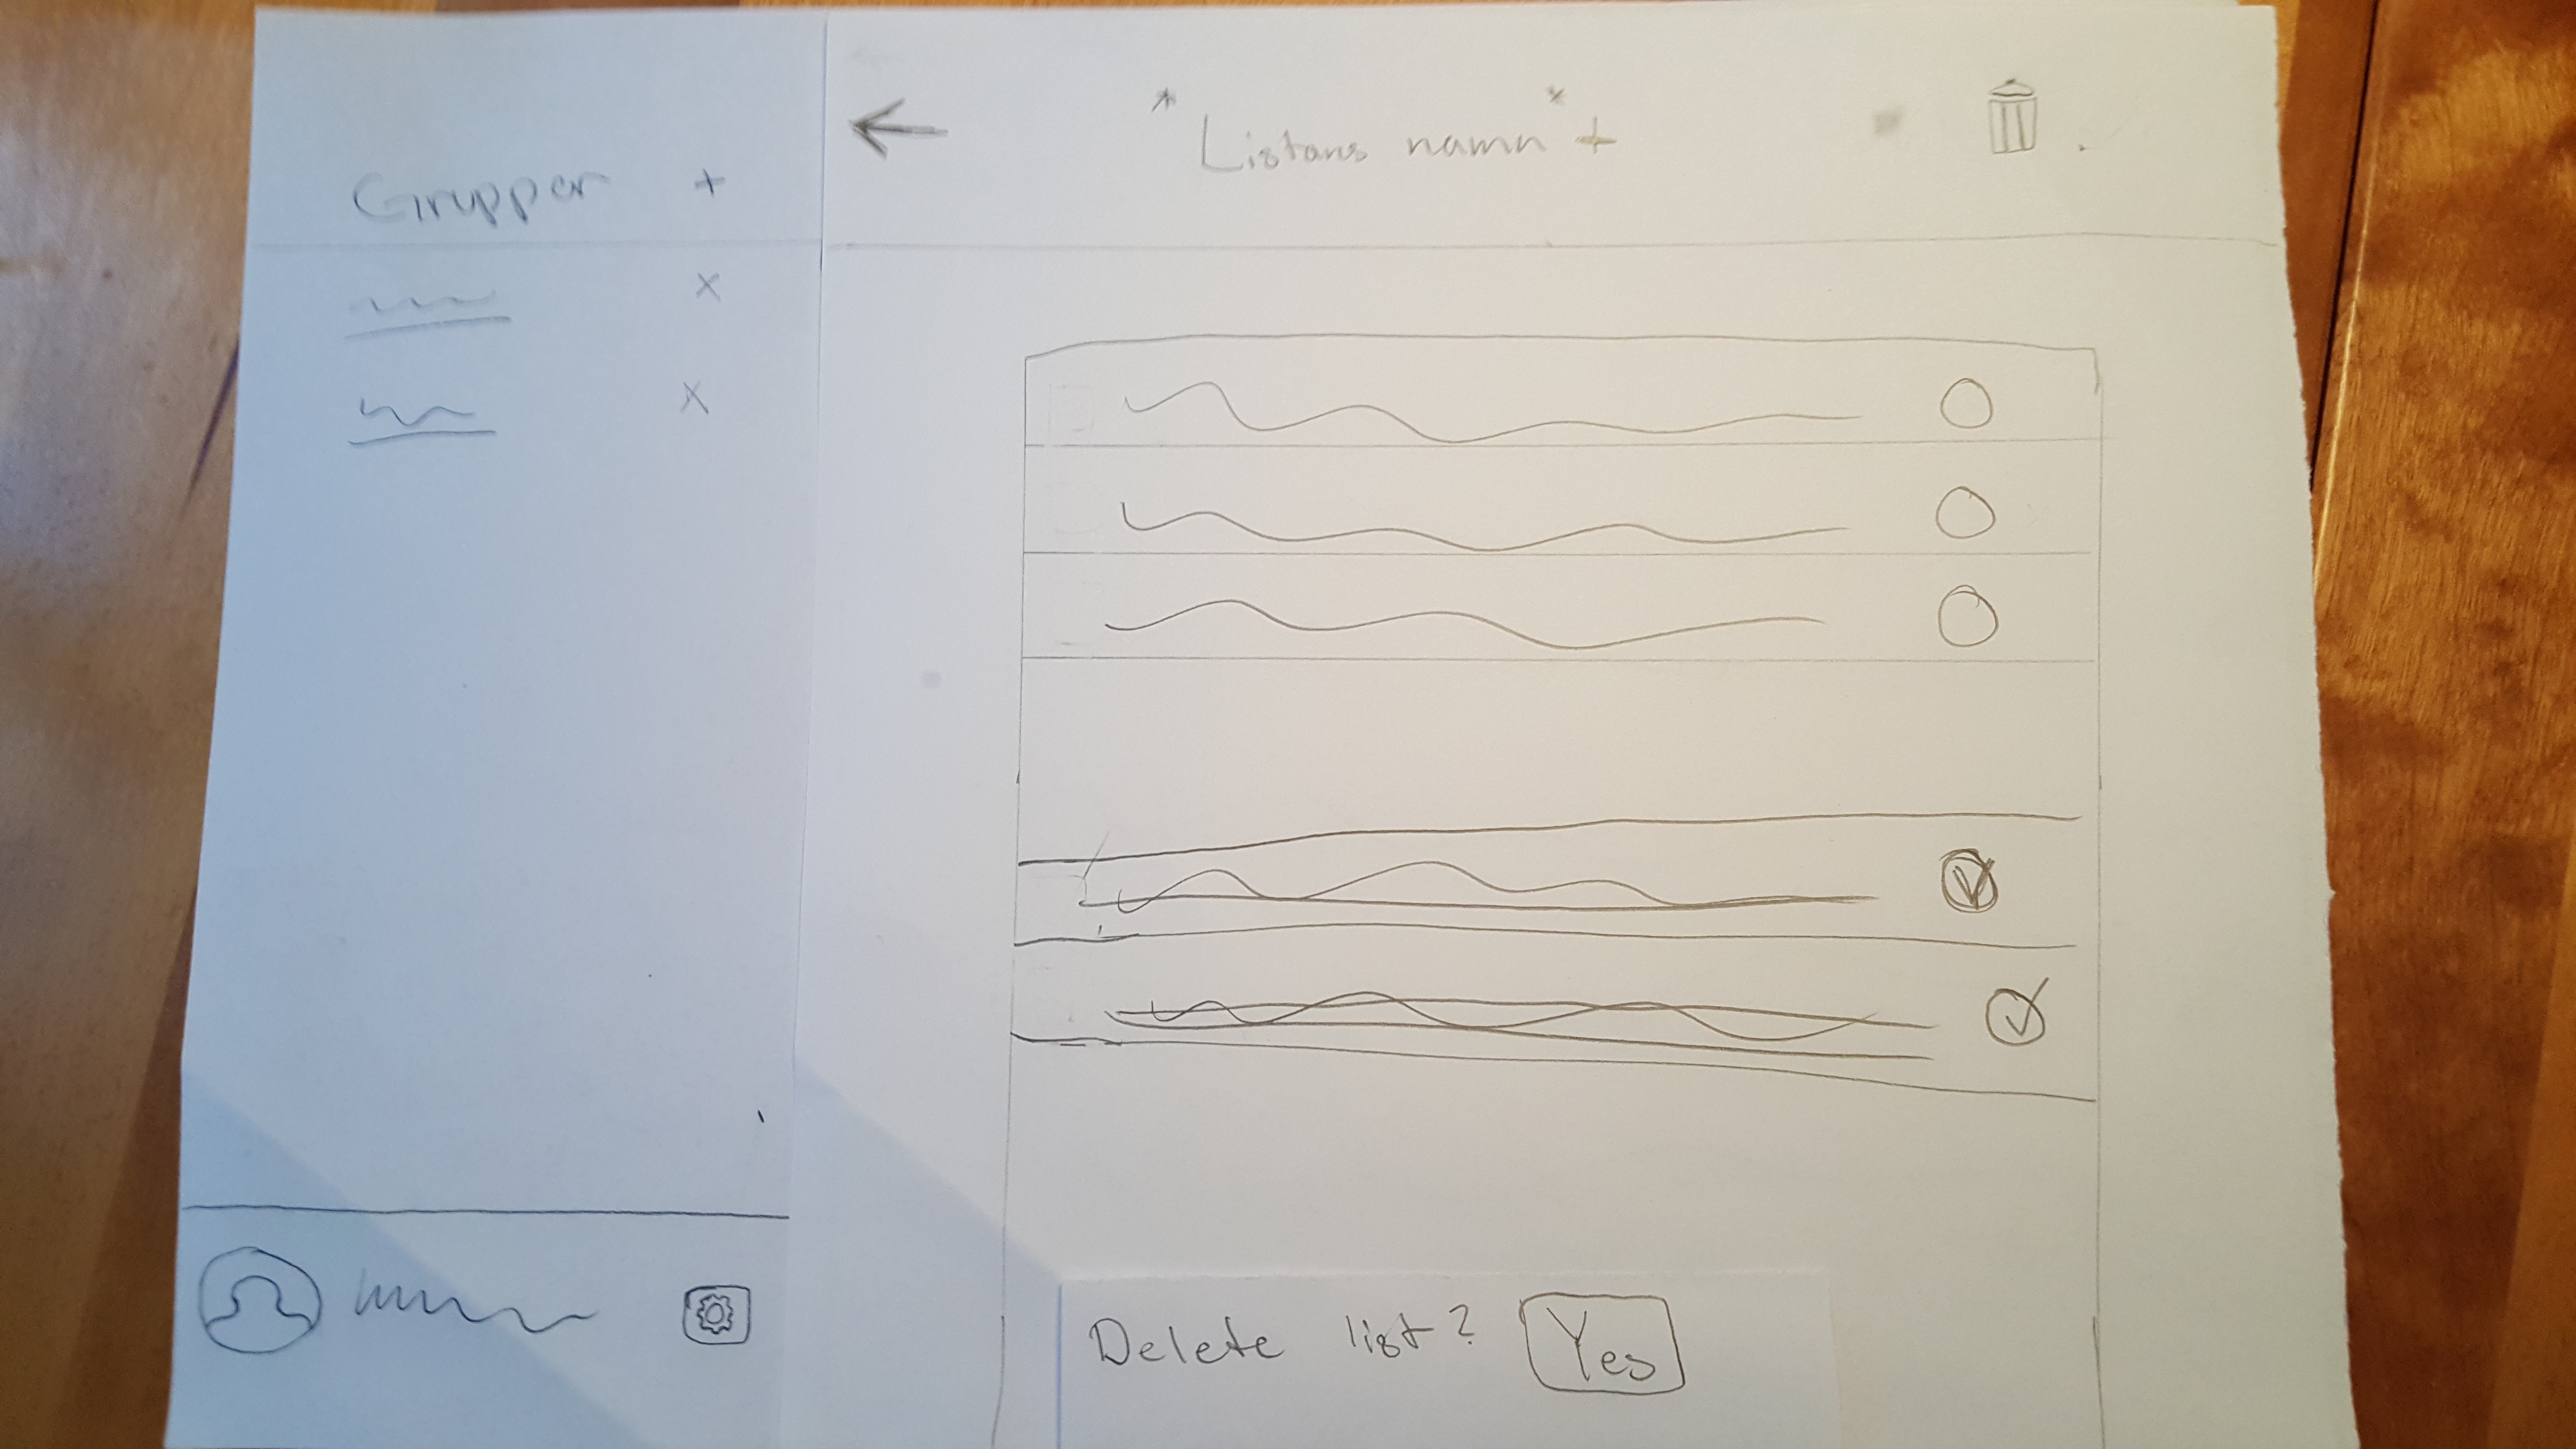 Grupper +
x
x
* Listans namn * +
Delete list? Yes